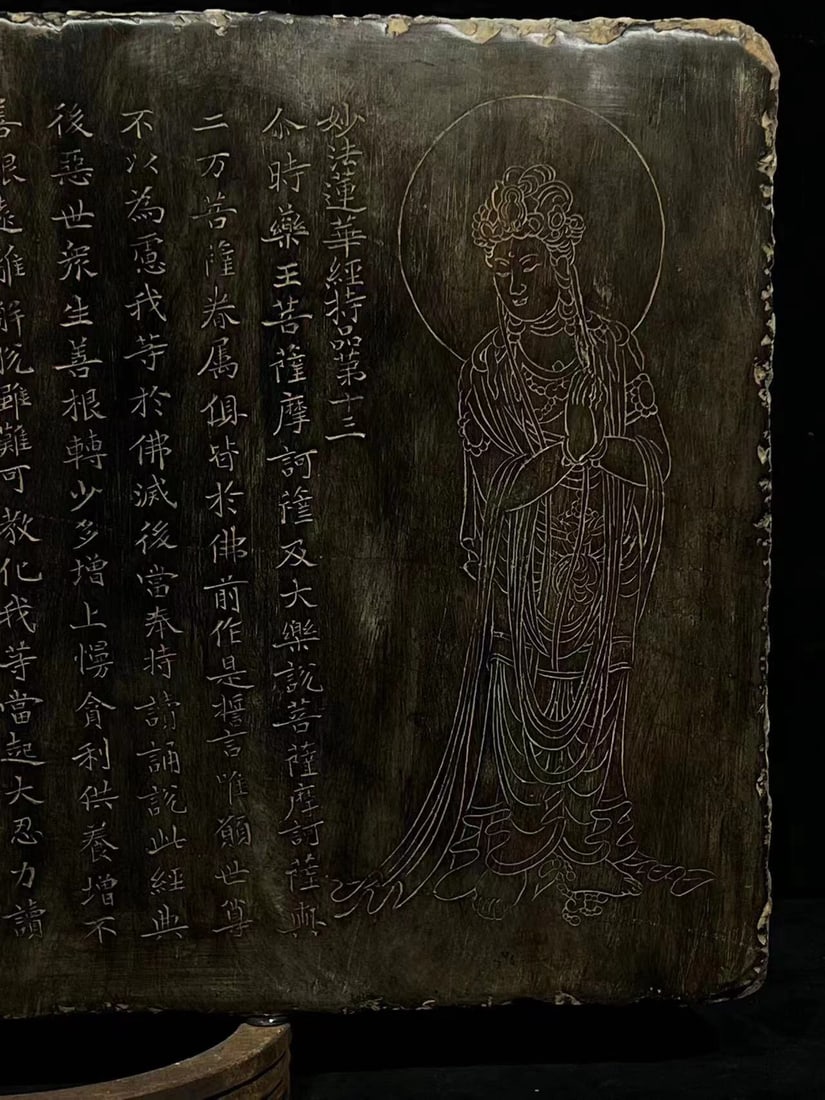 妙法蓮華經持品第十三
尒時藥王菩薩摩訶薩及大樂說菩薩摩訶薩與
二万菩薩眷属俱皆於佛前作是誓言唯願世尊
不以為慮我等於佛滅後當奉持讀誦說此經典
後惡世眾生善根轉少多增上慢貪利供養增不
善根遠離解脫雖難可教化我等當起大忍力讀